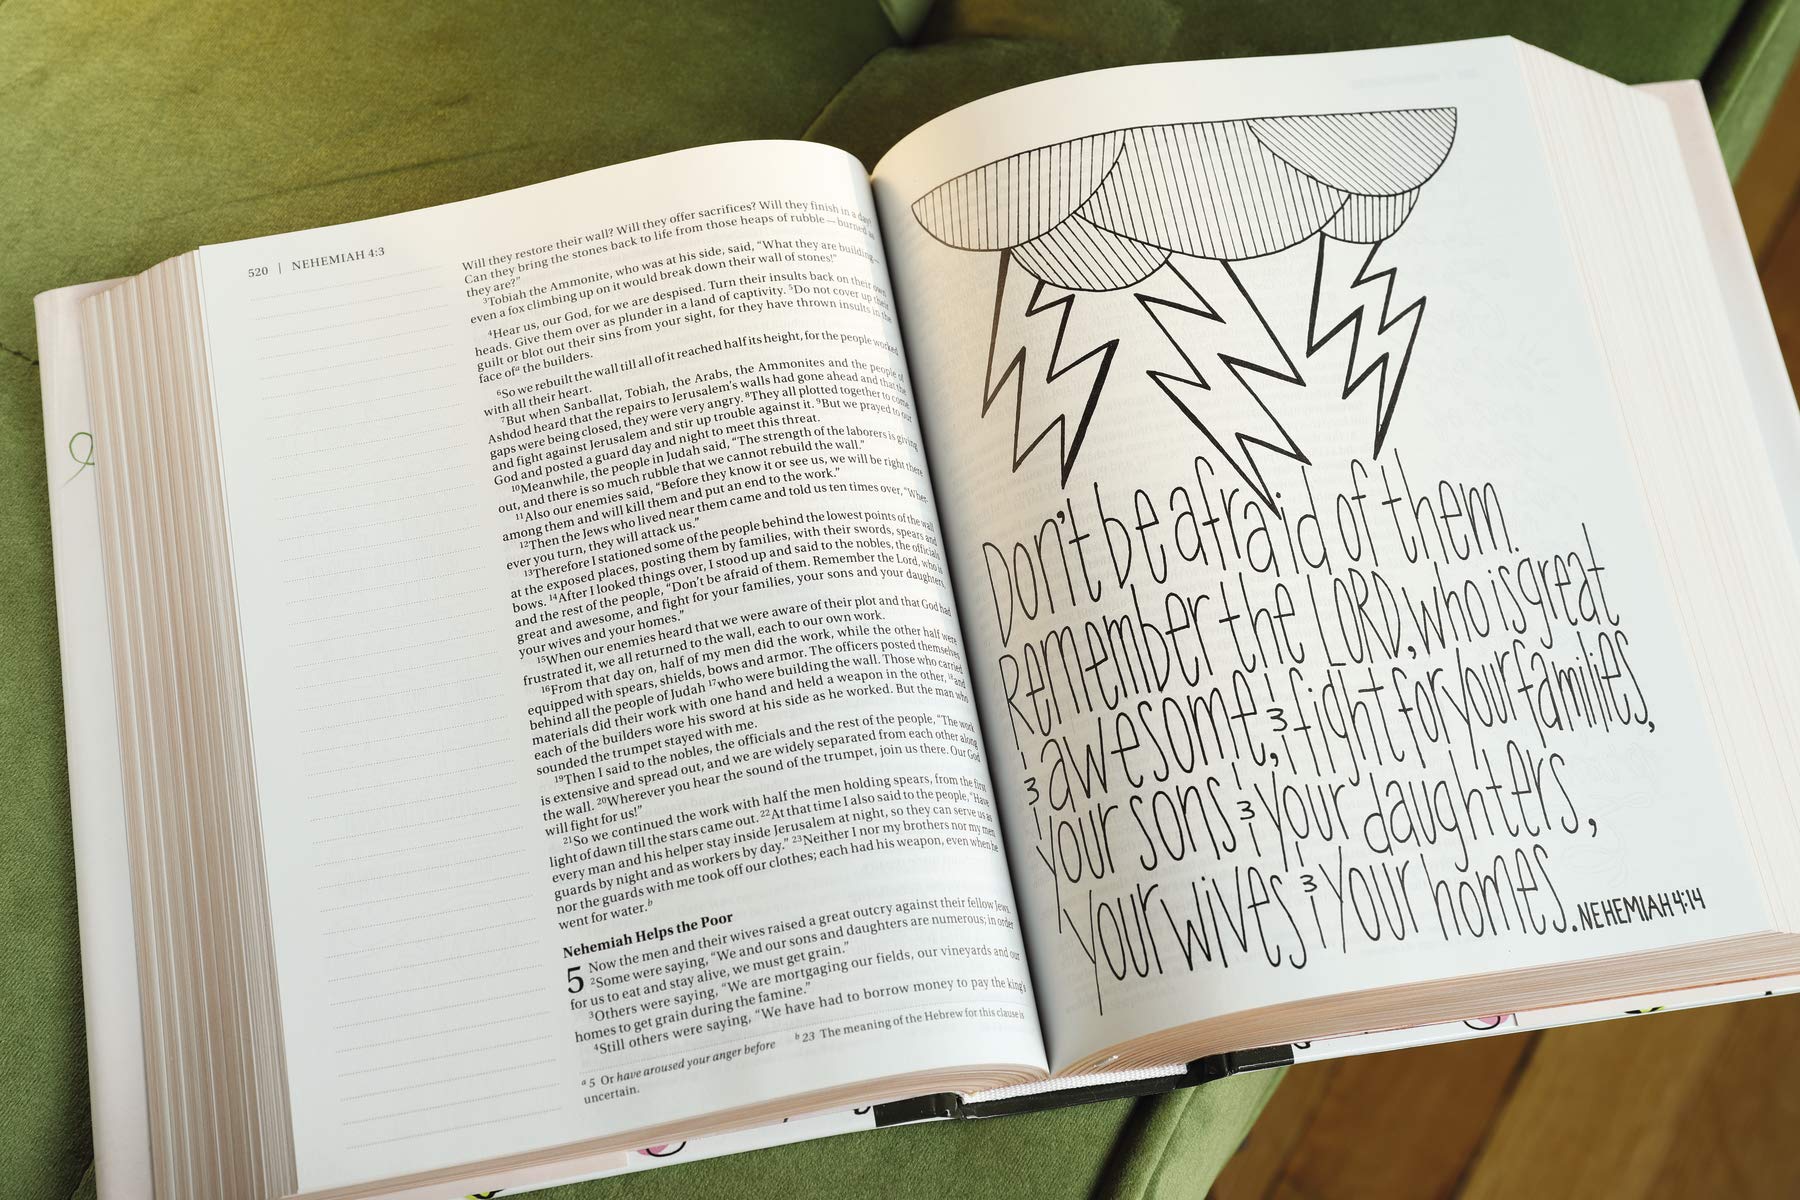 520 | NEHEMIAH 4:3
Will they restore their wall? Will they offer sacrifices? Will they finish in a day?
Can they bring the stones back to life from those heaps of rubble—burned as
they are?”
³Tobiah the Ammonite, who was at his side, said, “What they are building—
even a fox climbing up on it would break down their wall of stones!”
⁴Hear us, our God, for we are despised. Turn their insults back on their own
heads. Give them over as plunder in a land of captivity. ⁵Do not cover up their
guilt or blot out their sins from your sight, for they have thrown insults in the
face ofᵃ the builders.
⁶So we rebuilt the wall till all of it reached half its height, for the people worked
with all their heart.
⁷But when Sanballat, Tobiah, the Arabs, the Ammonites and the people of
Ashdod heard that the repairs to Jerusalem’s walls had gone ahead and that the
gaps were being closed, they were very angry. ⁸They all plotted together to come
and fight against Jerusalem and stir up trouble against it. ⁹But we prayed to our
God and posted a guard day and night to meet this threat.
¹⁰Meanwhile, the people in Judah said, “The strength of the laborers is giving
out, and there is so much rubble that we cannot rebuild the wall.”
¹¹Also our enemies said, “Before they know it or see us, we will be right there
among them and will kill them and put an end to the work.”
¹²Then the Jews who lived near them came and told us ten times over, “Wher-
ever you turn, they will attack us.”
¹³Therefore I stationed some of the people behind the lowest points of the wall
at the exposed places, posting them by families, with their swords, spears and
bows. ¹⁴After I looked things over, I stood up and said to the nobles, the officials
and the rest of the people, “Don’t be afraid of them. Remember the Lord, who is
great and awesome, and fight for your families, your sons and your daughters,
your wives and your homes.”
¹⁵When our enemies heard that we were aware of their plot and that God had
frustrated it, we all returned to the wall, each to our own work.
¹⁶From that day on, half of my men did the work, while the other half were
equipped with spears, shields, bows and armor. The officers posted themselves
behind all the people of Judah ¹⁷who were building the wall. Those who carried
materials did their work with one hand and held a weapon in the other, ¹⁸and
each of the builders wore his sword at his side as he worked. But the man who
sounded the trumpet stayed with me.
¹⁹Then I said to the nobles, the officials and the rest of the people, “The work
is extensive and spread out, and we are widely separated from each other along
the wall. ²⁰Wherever you hear the sound of the trumpet, join us there. Our God
will fight for us!”
²¹So we continued the work with half the men holding spears, from the first
light of dawn till the stars came out. ²²At that time I also said to the people, “Have
every man and his helper stay inside Jerusalem at night, so they can serve us as
guards by night and as workers by day.” ²³Neither I nor my brothers nor my men
nor the guards with me took off our clothes; each had his weapon, even when he
went for water.ᵇ
Nehemiah Helps the Poor
5 Now the men and their wives raised a great outcry against their fellow Jews.
²Some were saying, “We and our sons and daughters are numerous; in order
for us to eat and stay alive, we must get grain.”
³Others were saying, “We are mortgaging our fields, our vineyards and our
homes to get grain during the famine.”
⁴Still others were saying, “We have had to borrow money to pay the king’s
ᵃ 5 Or have aroused your anger before ᵇ 23 The meaning of the Hebrew for this clause is
uncertain.
Don't be afraid of them.
Remember the LORD, who is great
& awesome, & fight for your families,
your sons & your daughters,
your wives & your homes. NEHEMIAH 4:14